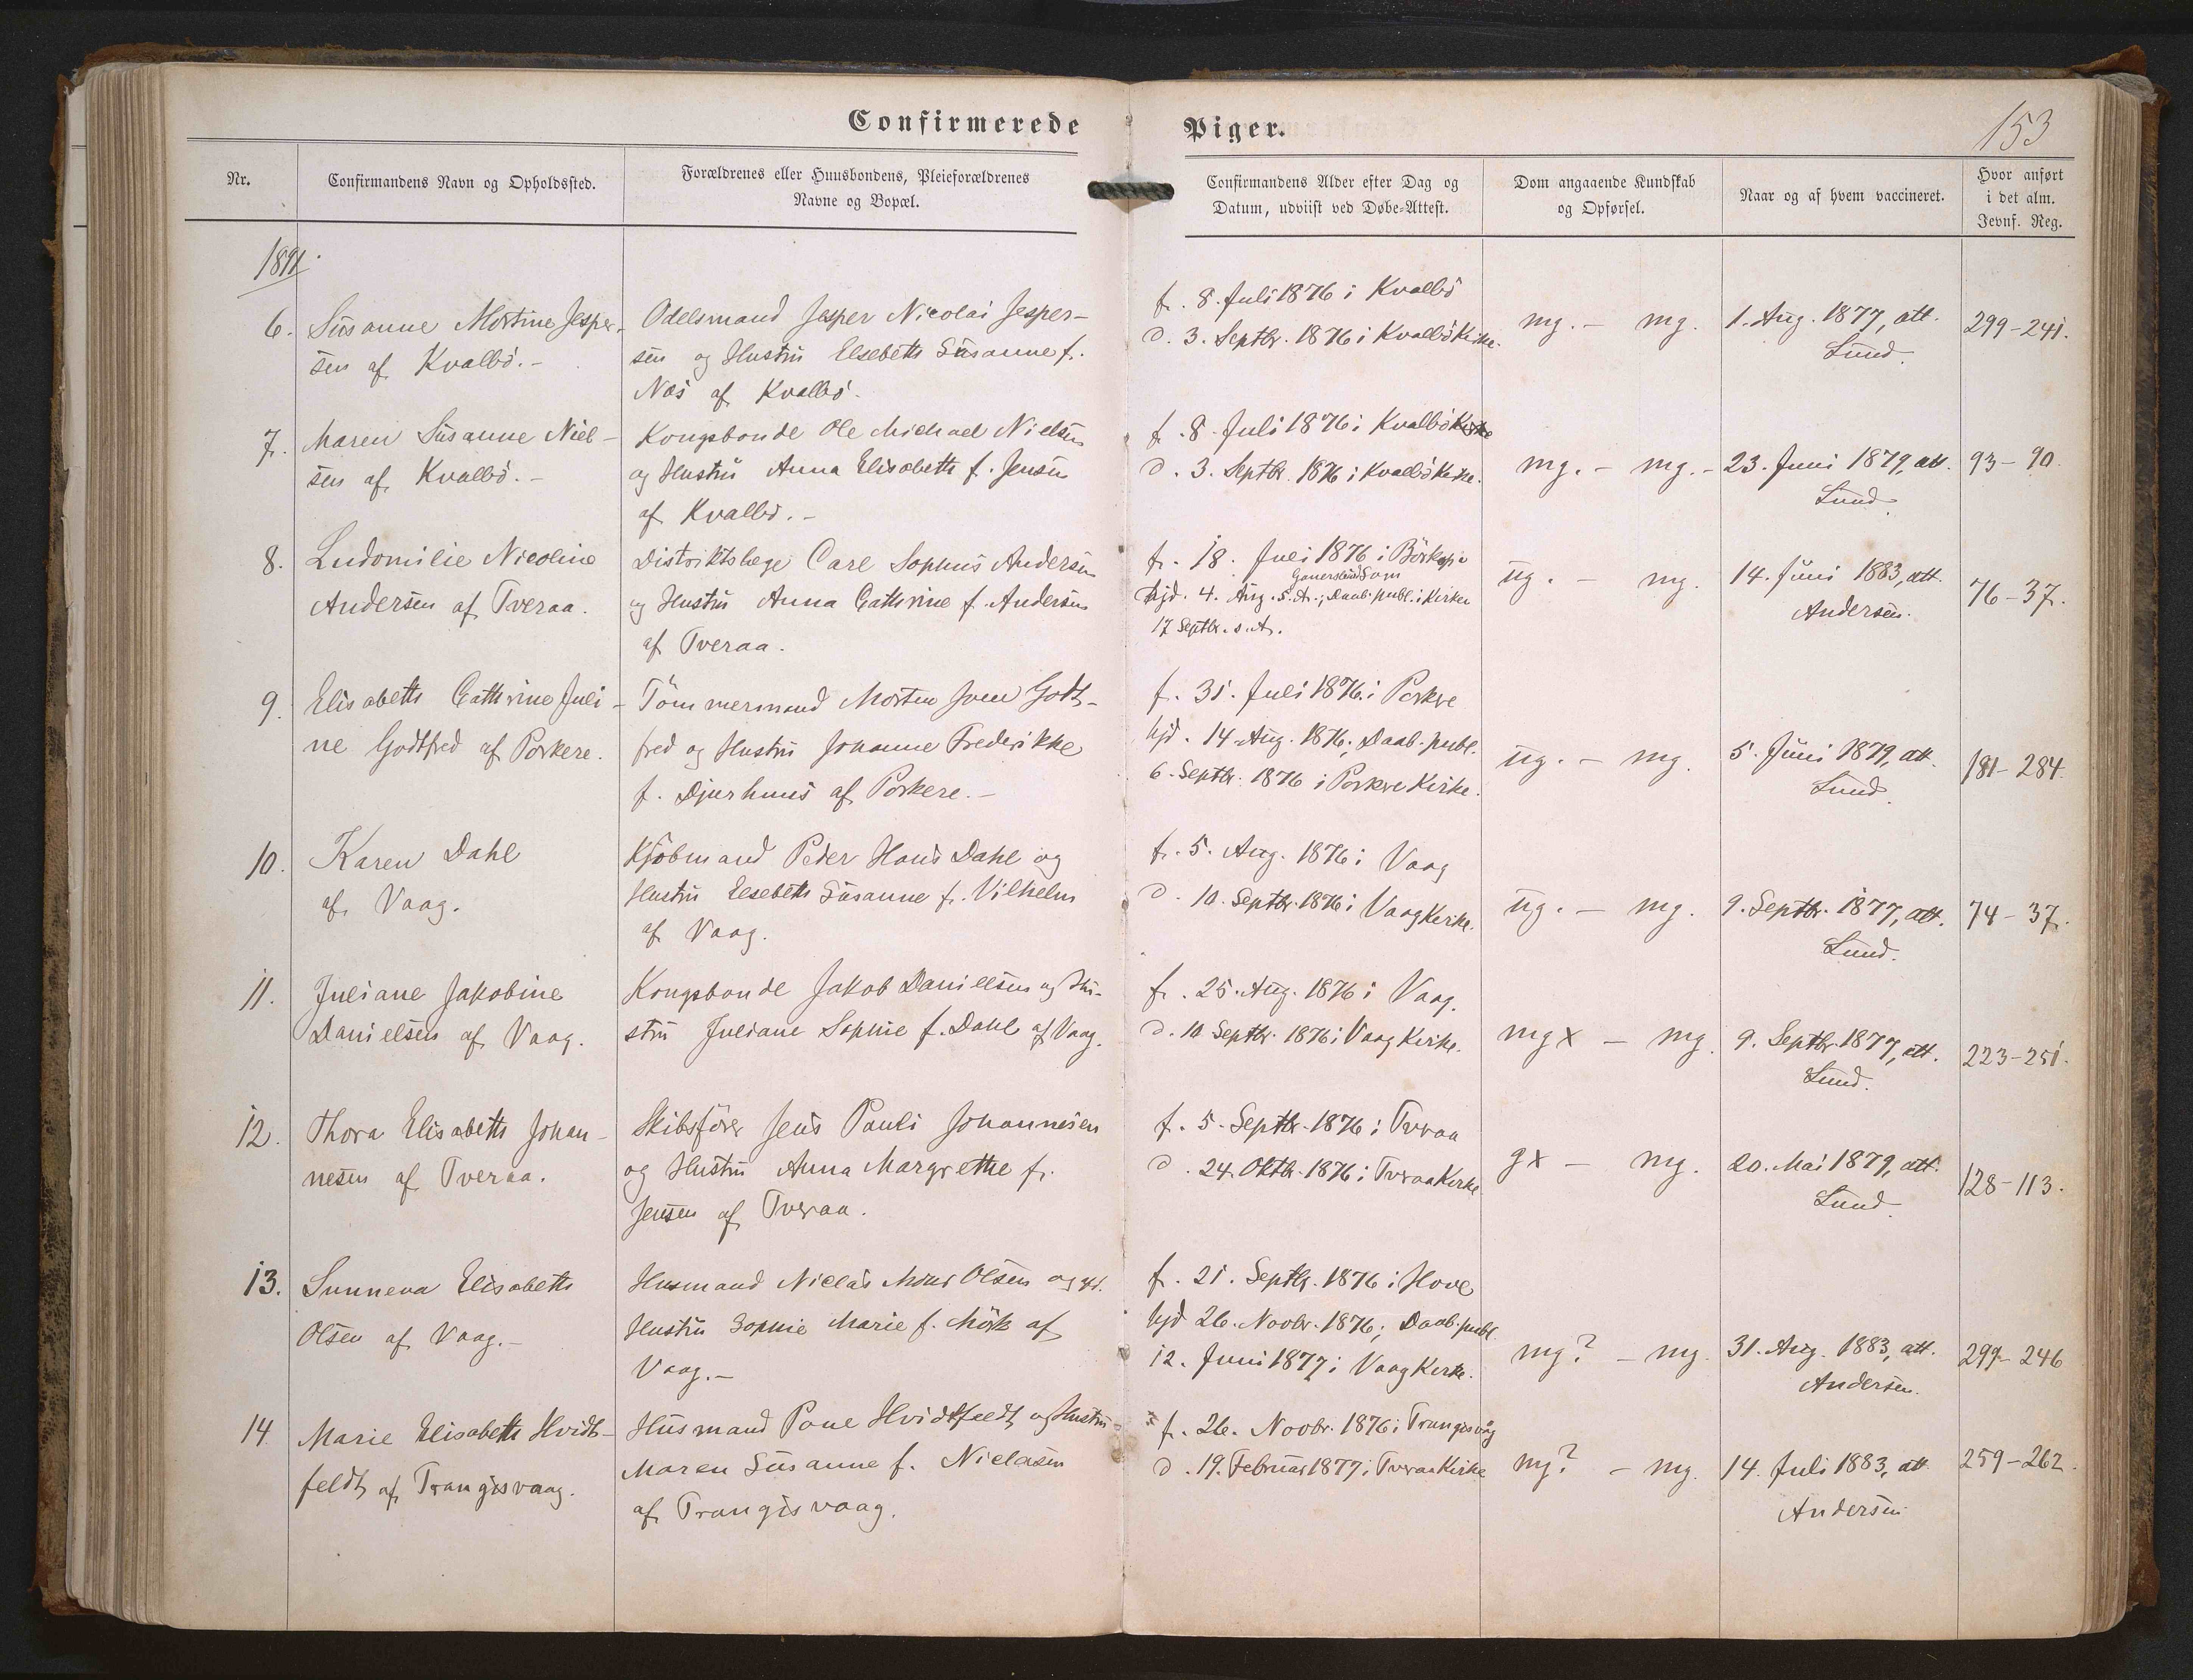 Confirmerede Piger.
153
Nr.
Confirmandens Navn og Opholdssted.
Forældrenes eller Huusbondens, Pleieforældrenes
Navne og Bopæl.
Confirmandens Alder efter Dag og
Datum, udviist ved Døbe-Attest.
Dom angaaende Kundskab
og Opførsel.
Naar og af hvem vaccineret.
Hvor anført
i det alm.
Jevnf. Reg.
1891.
6.
Susanne Mortine Jesper-
sen af Kvalbö.-
Odelsmand Jesper Nicolai Jesper-
sen og Hustru Elsebeth Susanne f.
Næs af Kvalbö.
f. 8. Juli 1876 i Kvalbö
d. 3. Septbr. 1876 i Kvalbö Kirke.
mg. - mg.
1. Aug. 1877, att.
Lund.
299-241.
7.
Maren Susanne Niel-
sen af Kvalbö.-
Kongsbonde Ole Michael Nielsen
og Hustru Anna Elisabeth f. Jensen
af Kvalbö.-
f. 8. Juli 1876 i Kvalbö
d. 3. Septbr. 1876 i Kvalbö Kirke.
mg. - mg.-
23. Juni 1879, att.
Lund.
93-90.
8.
Ludomilie Nicoline
Andersen af Tveraa.
Distriktslæge Carl Sophus Andersen
og Hustru Anna Cathrine f. Andersen
af Tveraa.
f. 18. Juli 1876 i Börkop i
Gauerslund Sogn
hjd. 4. Aug. s. A.; Daab. publ. i Kirken
17 Septbr. s. A.
ug. - mg.
14. Juni 1883, att.
Andersen.
76-37.
9.
Elisabeth Cathrine Juli-
ne Godtfred af Porkere.
Tömmermand Morten Joen Godt-
fred og Hustru Johanne Frederikke
f. Djurhuus af Porkere.-
f. 31. Juli 1876 i Porkere
hjd. 14. Aug. 1876; Daab. publ.
6. Septbr. 1876 i Porkere Kirke.
ug. - mg.
5. Juni 1879, att.
Lund.
181-284.
10.
Karen Dahl
af Vaag.
Kjöbmand Peder Hans Dahl og
Hustru Elsebeth Susanne f. Vilhelm
af Vaag.
f. 5. Aug. 1876 i Vaag
d. 10. Septbr. 1876 i Vaag Kirke.
ug. - mg.
9. Septbr. 1877, att.
Lund.
74-37.
11.
Juliane Jakobine
Danielsen af Vaag.
Kongsbonde Jakob Danielsen og Hu-
stru Juliane Sophie f. Dahl af Vaag.
f. 25. Aug. 1876 i Vaag.
d. 10 Septbr. 1876 i Vaag Kirke.
mgx - mg.
9. Septbr. 1877, att.
Lund.
223-251.
12.
Thora Elisabeth Johan-
nesen af Tveraa.
Skibsförer Jens Pauli Johannesen
og Hustru Anna Margrethe f.
Jensen af Tveraa.
f. 5. Septbr. 1876 i Tveraa
d. 24. Oktbr. 1876 i Tveraa Kirke
gx - mg.
20. Mai 1879, att.
Lund.
128-113.
13.
Sunneva Elisabeth
Olsen af Vaag.-
Husmand Niclas Olsen og
Hustru Sophie Marie f. Mörk af
Vaag.-
f. 21. Septbr. 1876 i Hove
hjd 26. Novbr. 1876; Daab. publ.
12. Juni 1877 i Vaag Kirke.
mg? - mg.
31. Aug. 1883, att.
Andersen.
299-246
14
Marie Elisabeth Hvidt-
feldt af Trangisvaag.
Husmand Poul Hvidtfeldt og Hustru
Maren Susanne f. Niclasen
af Trangisvaag.
f. 26. Novbr. 1876 i Trangisvaag
d. 19. Februar 1877 i Tveraa Kirke
mg? - mg.
14. Juli 1883, att
Andersen
259-262.